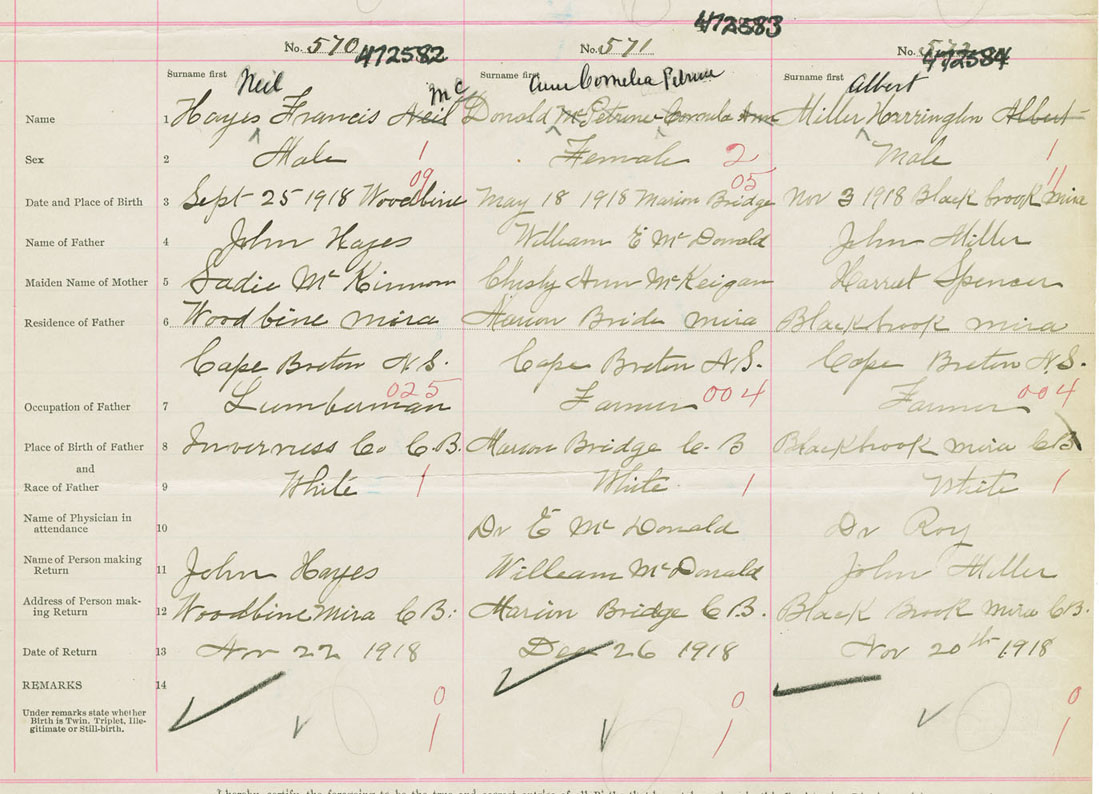 472583
No. 570 472582 No. 571 No. 472584
Surname first Neil Surname first Ann Cornelia Petrina Surname first Albert
Name 1 Hayes Francis Neil Mc Donald Mc Petrina Cornelia Ann Miller Harrington Albert
Sex 2 Male 1 Female 2 Male 1
09 05 11
Date and Place of Birth 3 Sept 25 1918 Woodbine May 18 1918 Marion Bridge Nov 3 1918 Black brook Mira
Name of Father 4 John Hayes William E McDonald John Miller
Maiden Name of Mother 5 Sadie McKinnon Ann McKeigan Harriet Spencer
Residence of Father 6 Woodbine Mira Marion Bride Mira Blackbrook Mira
Cape Breton N.S. Cape Breton N.S. Cape Breton N.S.
025 004 004
Occupation of Father 7 Lumberman Farmer Farmer
Place of Birth of Father 8 Inverness Co. C.B. Marion Bridge C.B Blackbrook Mira CB
and
Race of Father 9 White 1 White 1 White 1
Name of Physician in
attendance 10 Dr E McDonald Dr Roy
Name of Person making
Return 11 John Hayes William McDonald John Miller
Address of Person mak-
ing Return 12 Woodbine Mira C B. Marion Bridge C B. Black Brook Mira C B.
Date of Return 13 Nov 22 1918 Dec 26 1918 Nov 20th 1918
REMARKS 14
0 0 0
Under remarks state whether
Birth is Twin, Triplet, Ille-
gitimate or Still-birth.
1 1 1